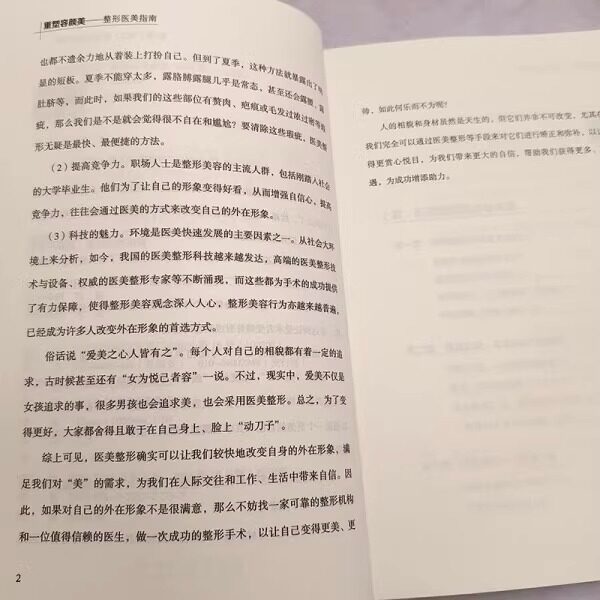 重塑容颜美——整形医美指南
也都不遗余力地从着装上打扮自己。但到了夏季，这种方法就暴露出了明
显的短板。夏季不能穿太多，露胳膊露腿几乎是常态，甚至还会露腰、露
肚脐等，而此时，如果我们的这些部位有赘肉、疤痕或毛发过浓过密等瑕
疵，那么我们是不是就会觉得很不自在和尴尬？要清除这些瑕疵，医美整
形无疑是最快、最便捷的方法。
（2）提高竞争力。职场人士是整形美容的主流人群，包括刚踏入社会
的大学毕业生。他们为了让自己的形象变得好看，从而增强自信心，提高
竞争力，往往会通过医美的方式来改变自己的外在形象。
（3）科技的魅力。环境是医美快速发展的主要因素之一。从社会大环
境上来分析，如今，我国的医美整形科技越来越发达，高端的医美整形技
术与设备、权威的医美整形专家等不断涌现，而这些都为手术的成功提供
了有力保障，使得整形美容观念深入人心，整形美容行为亦越来越普遍，
已经成为许多人改变外在形象的首选方式。
俗话说“爱美之心人皆有之”。每个人对自己的相貌都有着一定的追
求，古时候甚至还有“女为悦己者容”一说。不过，现实中，爱美不仅是
女孩追求的事，很多男孩也会追求美，也会采用医美整形。总之，为了变
得更好，大家都舍得且敢于在自己身上、脸上“动刀子”。
综上可见，医美整形确实可以让我们较快地改变自身的外在形象，满
足我们对“美”的需求，为我们在人际交往和工作、生活中带来自信。因
此，如果对自己的外在形象不是很满意，那么不妨找一家可靠的整形机构
和一位值得信赖的医生，做一次成功的整形手术，以让自己变得更美、更
2
帅，如此何乐而不为呢？
人的相貌和身材虽然是天生的，但它们并非不可改变，尤其在
我们完全可以通过医美整形等手段来对它们进行矫正和弥补，以让
得更赏心悦目，为我们带来更大的自信，帮助我们获得更多、
遇，为成功增添助力。